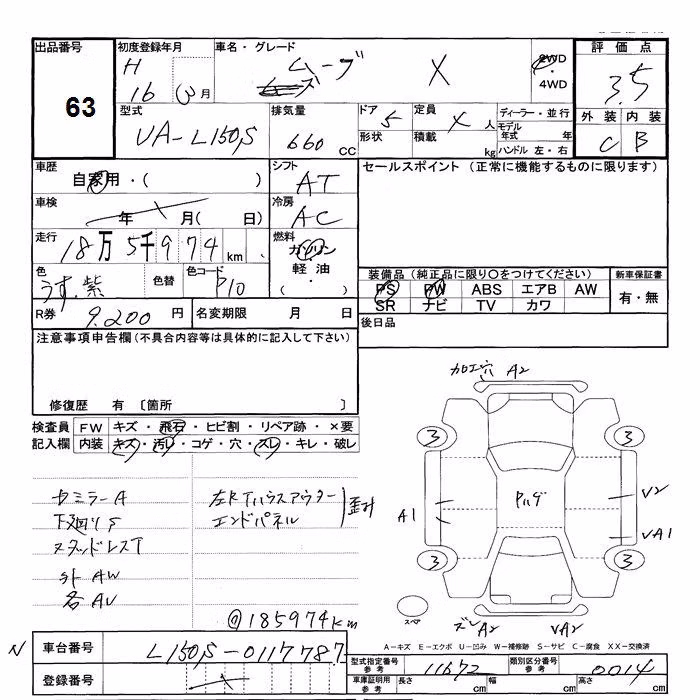 出品番号
63
初度登録年月
H
16 3月
車名・グレード
ムーヴ X
2WD
・
4WD
評価点
3.5
外装 内装
C B
型式
UA-L150S
排気量
660 cc
ドア 5
形状
定員 人
積載 kg
ディーラー・並行
モデル年式 年
ハンドル 左・右
車歴
自家用・( )
シフト
AT
車検
年 月( 日)
冷房
AC
走行
18万5千974km
燃料
ガソリン
軽油
( ・ )
色
うす紫
色替
色コード
P10
R券 9.200 円
名変期限 月 日
セールスポイント (正常に機能するものに限ります)
装備品(純正品に限り○をつけてください)
PS PW ABS エアB AW
SR ナビ TV カワ
新車保証書
有・無
後日品
注意事項申告欄(不具合内容等は具体的に記入して下さい)
修復歴 有 〔箇所 〕
検査員記入欄
FW キズ・飛石・ヒビ割・リペア跡・×要
内装 キズ・汚レ・コゲ・穴・スレ・キレ・破レ
セミラーA
下廻りS
スタッドレスT
外AW
各AU
左Rタイハウスアウター
エンドパネル
歪み
@185974km
加工穴 A2
3
3
3
3
A1
V2
VA1
スペア
A2
VA2
A-キズ E-エクボ U-凹み W-補修跡 S-サビ C-腐食 XX-交換済
N
車台番号 L150S-0117787
登録番号
型式指定番号 参考 11672
類別区分番号 参考 0014
車庫証明用 参考 長さ cm 幅 cm 高さ cm